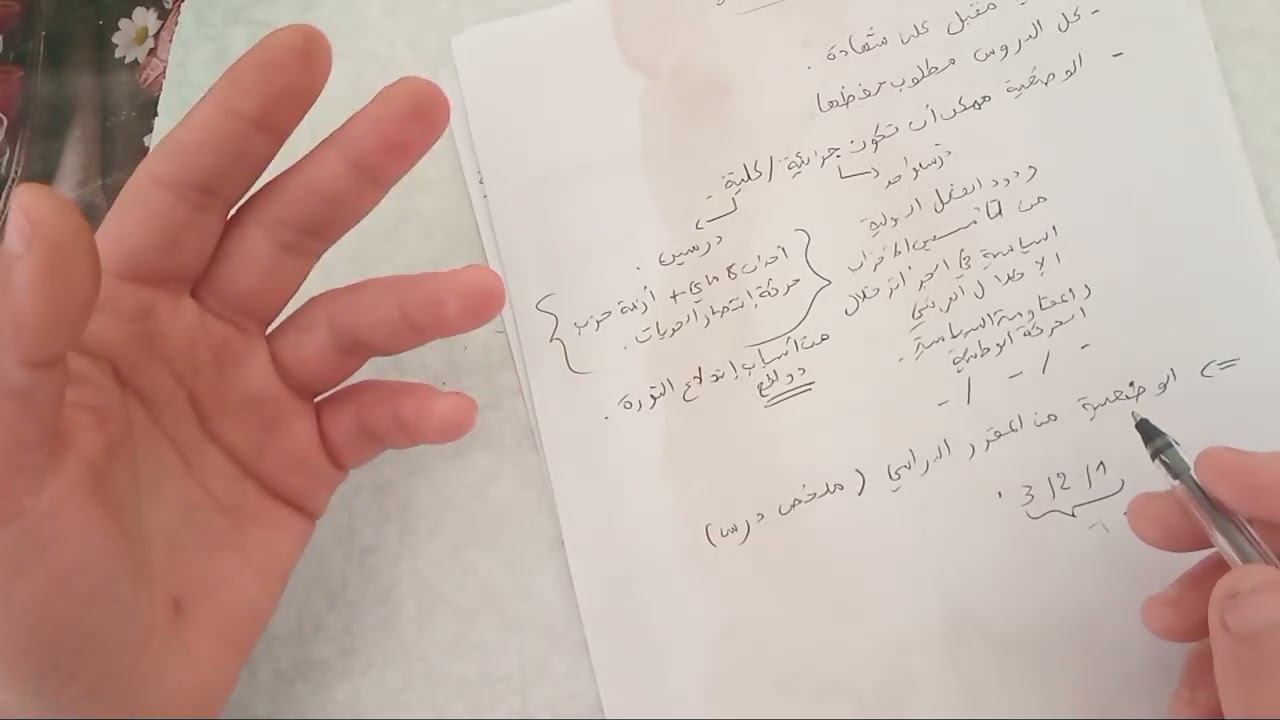 مقبل على شهادة .
- كل الدروس مطلوب حفظها
- الوضعية ممكن أن تكون جزئية / كلية
درس واحد
درسين .
ردود الفعل الدولية
من
السياسية في الجزائر خلال
الإحتلال الفرنسي
و المقاومة السياسية .
الحركة الوطنية
أحداث 8 ماي + أزمة حزب
حركة إنتصار الحريات .
من أسباب إندلاع الثورة .
دوافع
- / - / -
=> الوضعية من المقرر الدراسي ( ملخص درس )
1 / 2 / 3